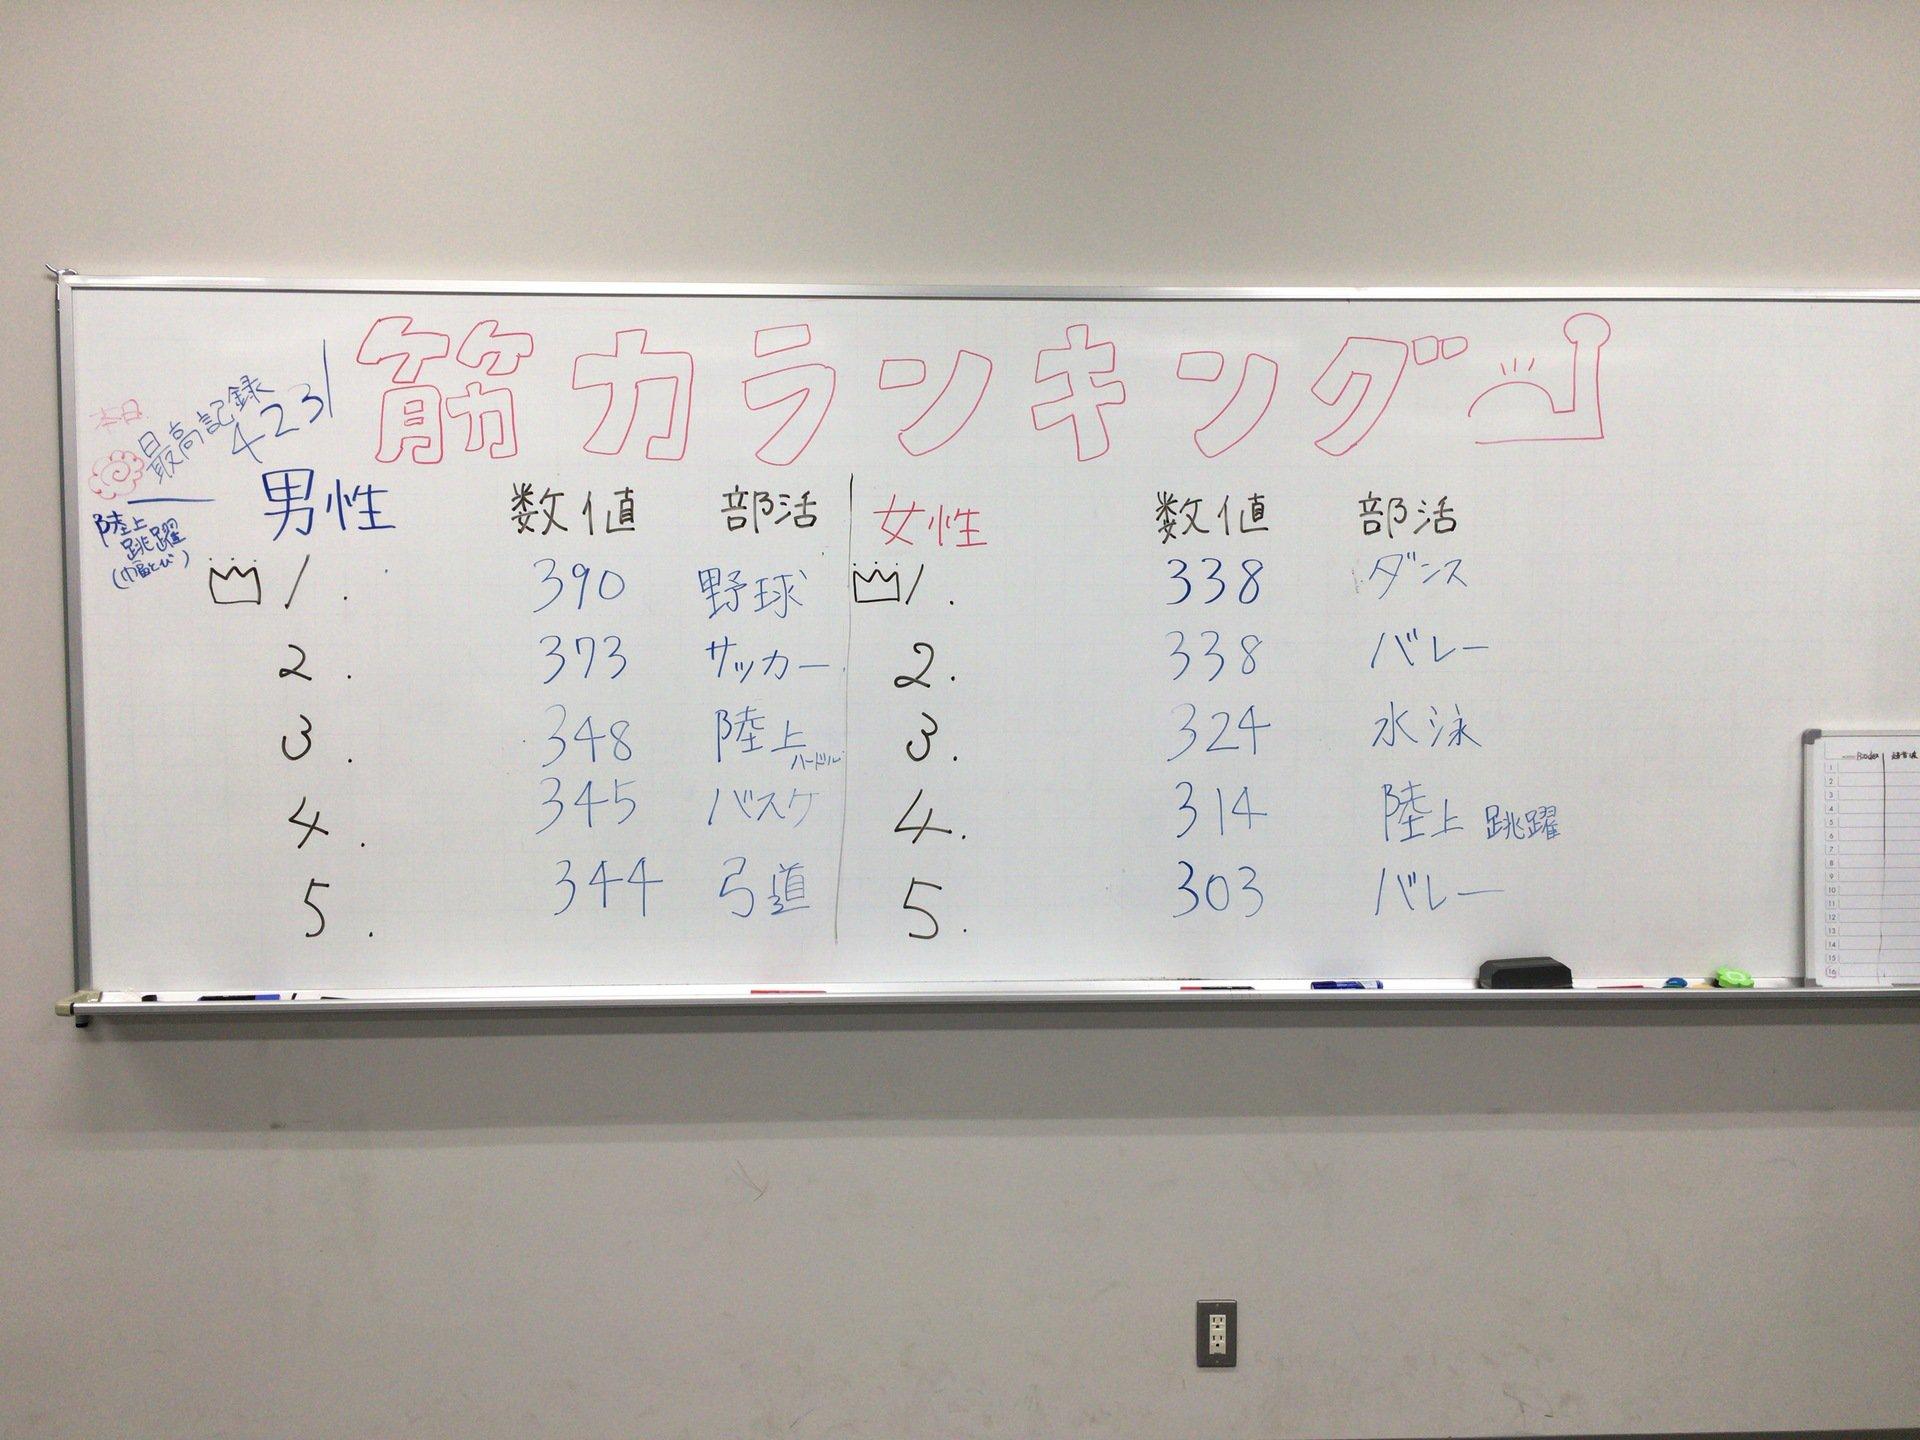 筋力ランキング
本日
最高記録
423
陸上
跳躍
(幅とび)
男性 数値 部活 女性 数値 部活
1. 390 野球 1. 338 ダンス
2. 373 サッカー 2. 338 バレー
3. 348 陸上 ハードル 3. 324 水泳
4. 345 バスケ 4. 314 陸上 跳躍
5. 344 弓道 5. 303 バレー
1
2
3
4
5
6
7
8
9
10
11
12
13
14
15
16